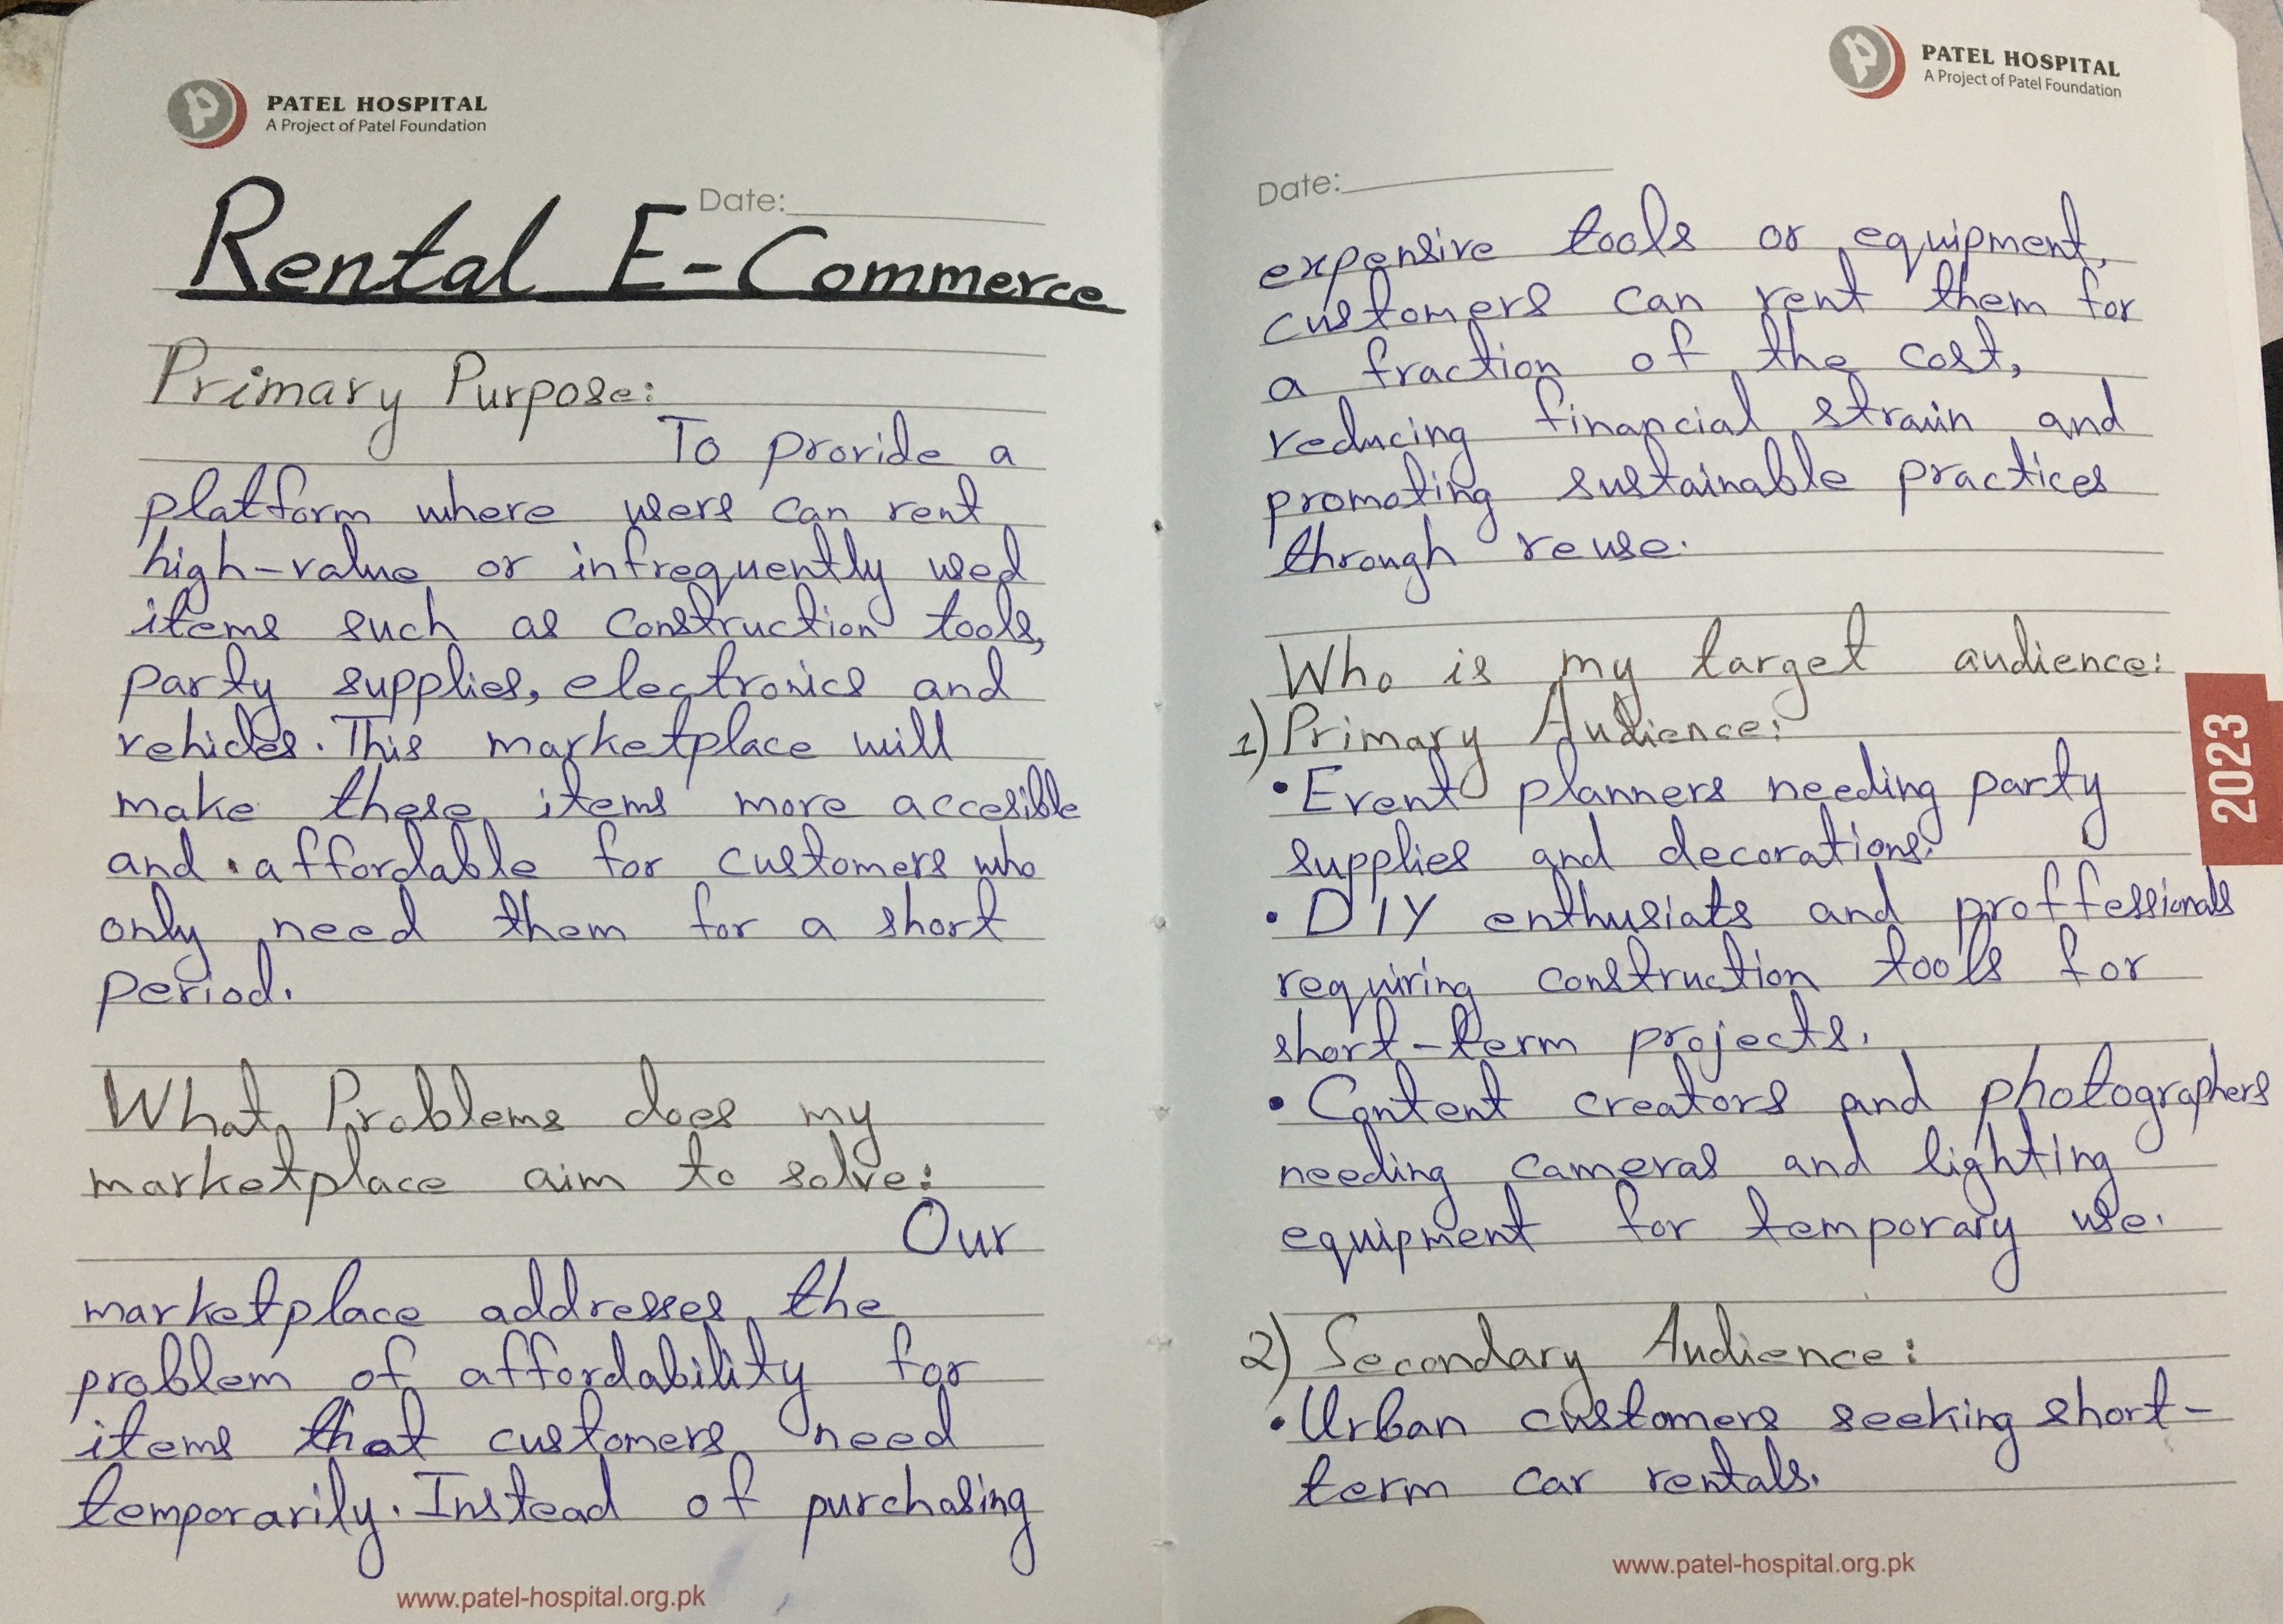 PATEL HOSPITAL
A Project of Patel Foundation
Date:
Rental E-Commerce
Primary Purpose:
To provide a
platform where users can rent
high-value or infrequently used
items such as construction tools,
party supplies, electronics and
vehicles. This marketplace will
make these items more accesible
and affordable for customers who
only need them for a short
period.
What Problems does my
marketplace aim to solve:
Our
marketplace addresses the
problem of affordability for
items that customers need
temporarily. Instead of purchasing
www.patel-hospital.org.pk
PATEL HOSPITAL
A Project of Patel Foundation
Date:
expensive tools or equipment,
customers can rent them for
a fraction of the cost,
reducing financial strain and
promoting sustainable practices
through reuse.
Who is my target audience:
1) Primary Audience:
• Event planners needing party
supplies and decorations.
• DIY enthusiats and proffessionals
requiring construction tools for
short-term projects.
• Content creators and photographers
needing cameras and lighting
equipment for temporary use.
2) Secondary Audience:
• Urban customers seeking short-
term car rentals.
www.patel-hospital.org.pk
2023